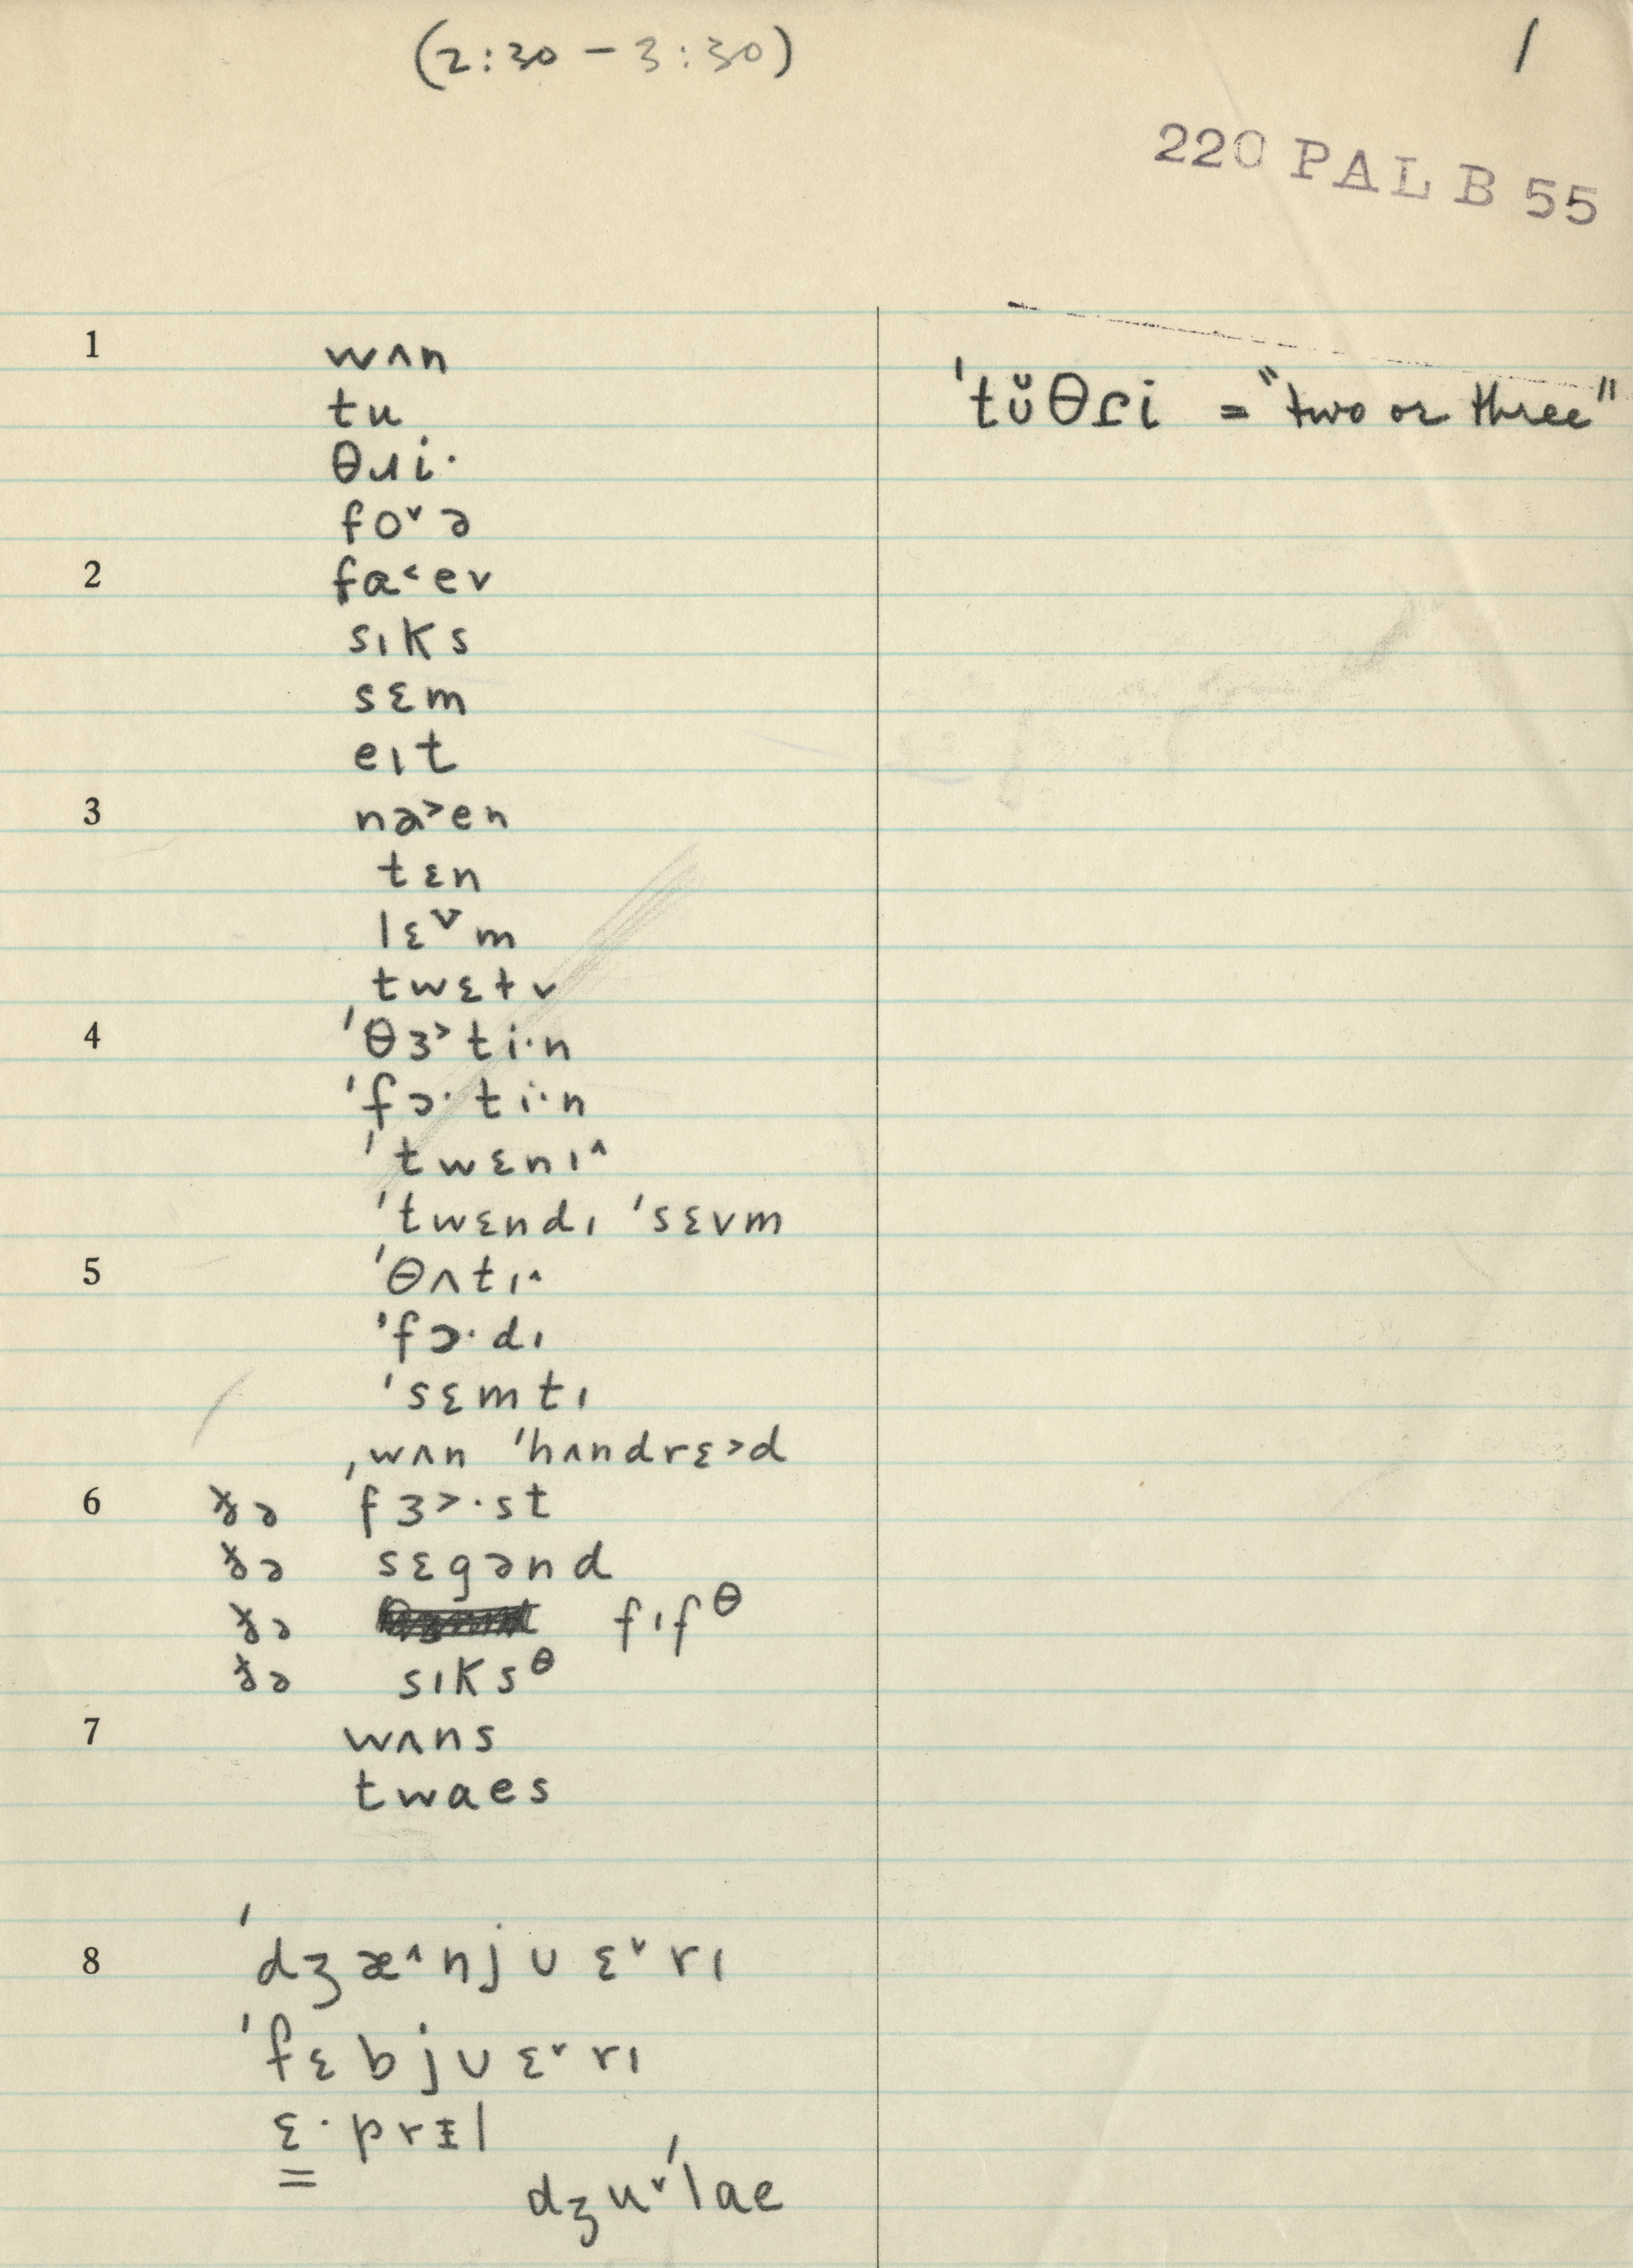 (2:30 – 3:30) 1
220 PAL B 55
1 wʌn
tu
'tŭθɾi = "two or three"
θɹi·
foᵛə
2 fa˂ev
sɪks
sɛm
eɪt
3 nə˃en
tɛn
lɛᵛm
twɛtv
4 'θɜ˃ti·n
'fɔ·ti·n
'twɛnɪ^
'twɛndɪ 'sɛvm
5 'θʌtɪ^
'fɔ·dɪ
'sɛmtɪ
ˌwʌn 'hʌndrɛ˃d
6 ðə fɜ˃·st
ðə sɛgənd
ðə fɪfᶿ
ðə sɪksᶿ
7 wʌns
twaes
8 'dʒæ^njʊɛᵛrɪ
'fɛbjʊɛᵛrɪ
ɛ·prɪl
dʒuᵛ'lae